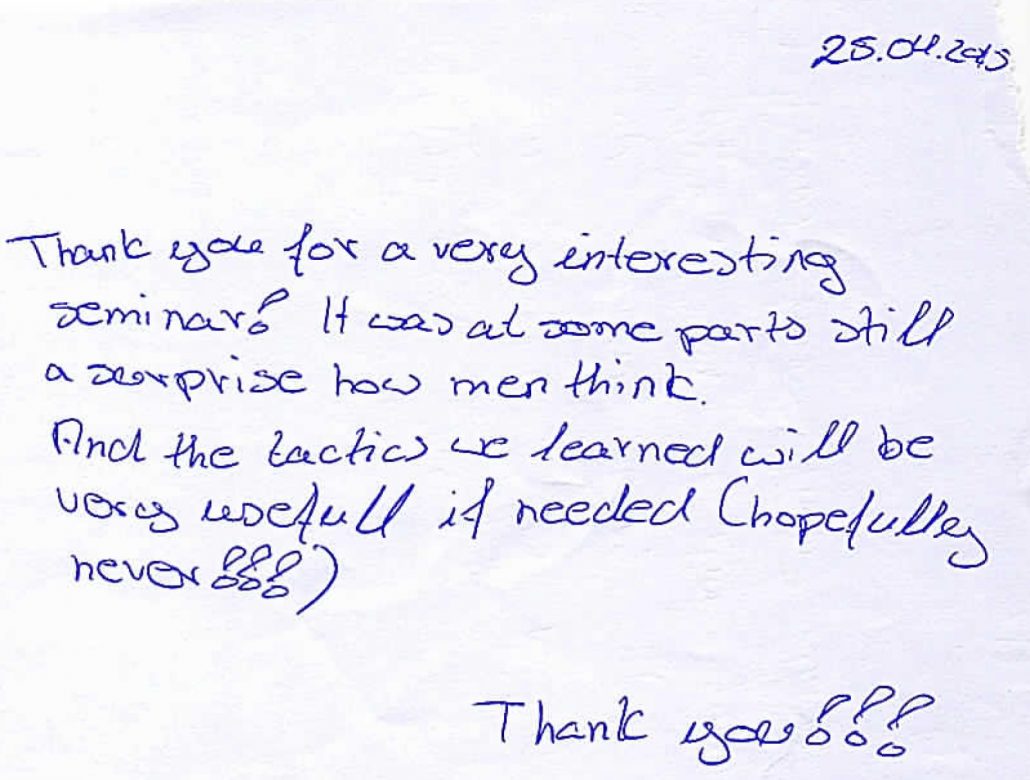 25.04.2015
Thank you for a very interesting
seminar! It was at some parts still
a surprise how men think.
And the tactics we learned will be
very usefull if needed (hopefully
never!!!)
Thank you!!!